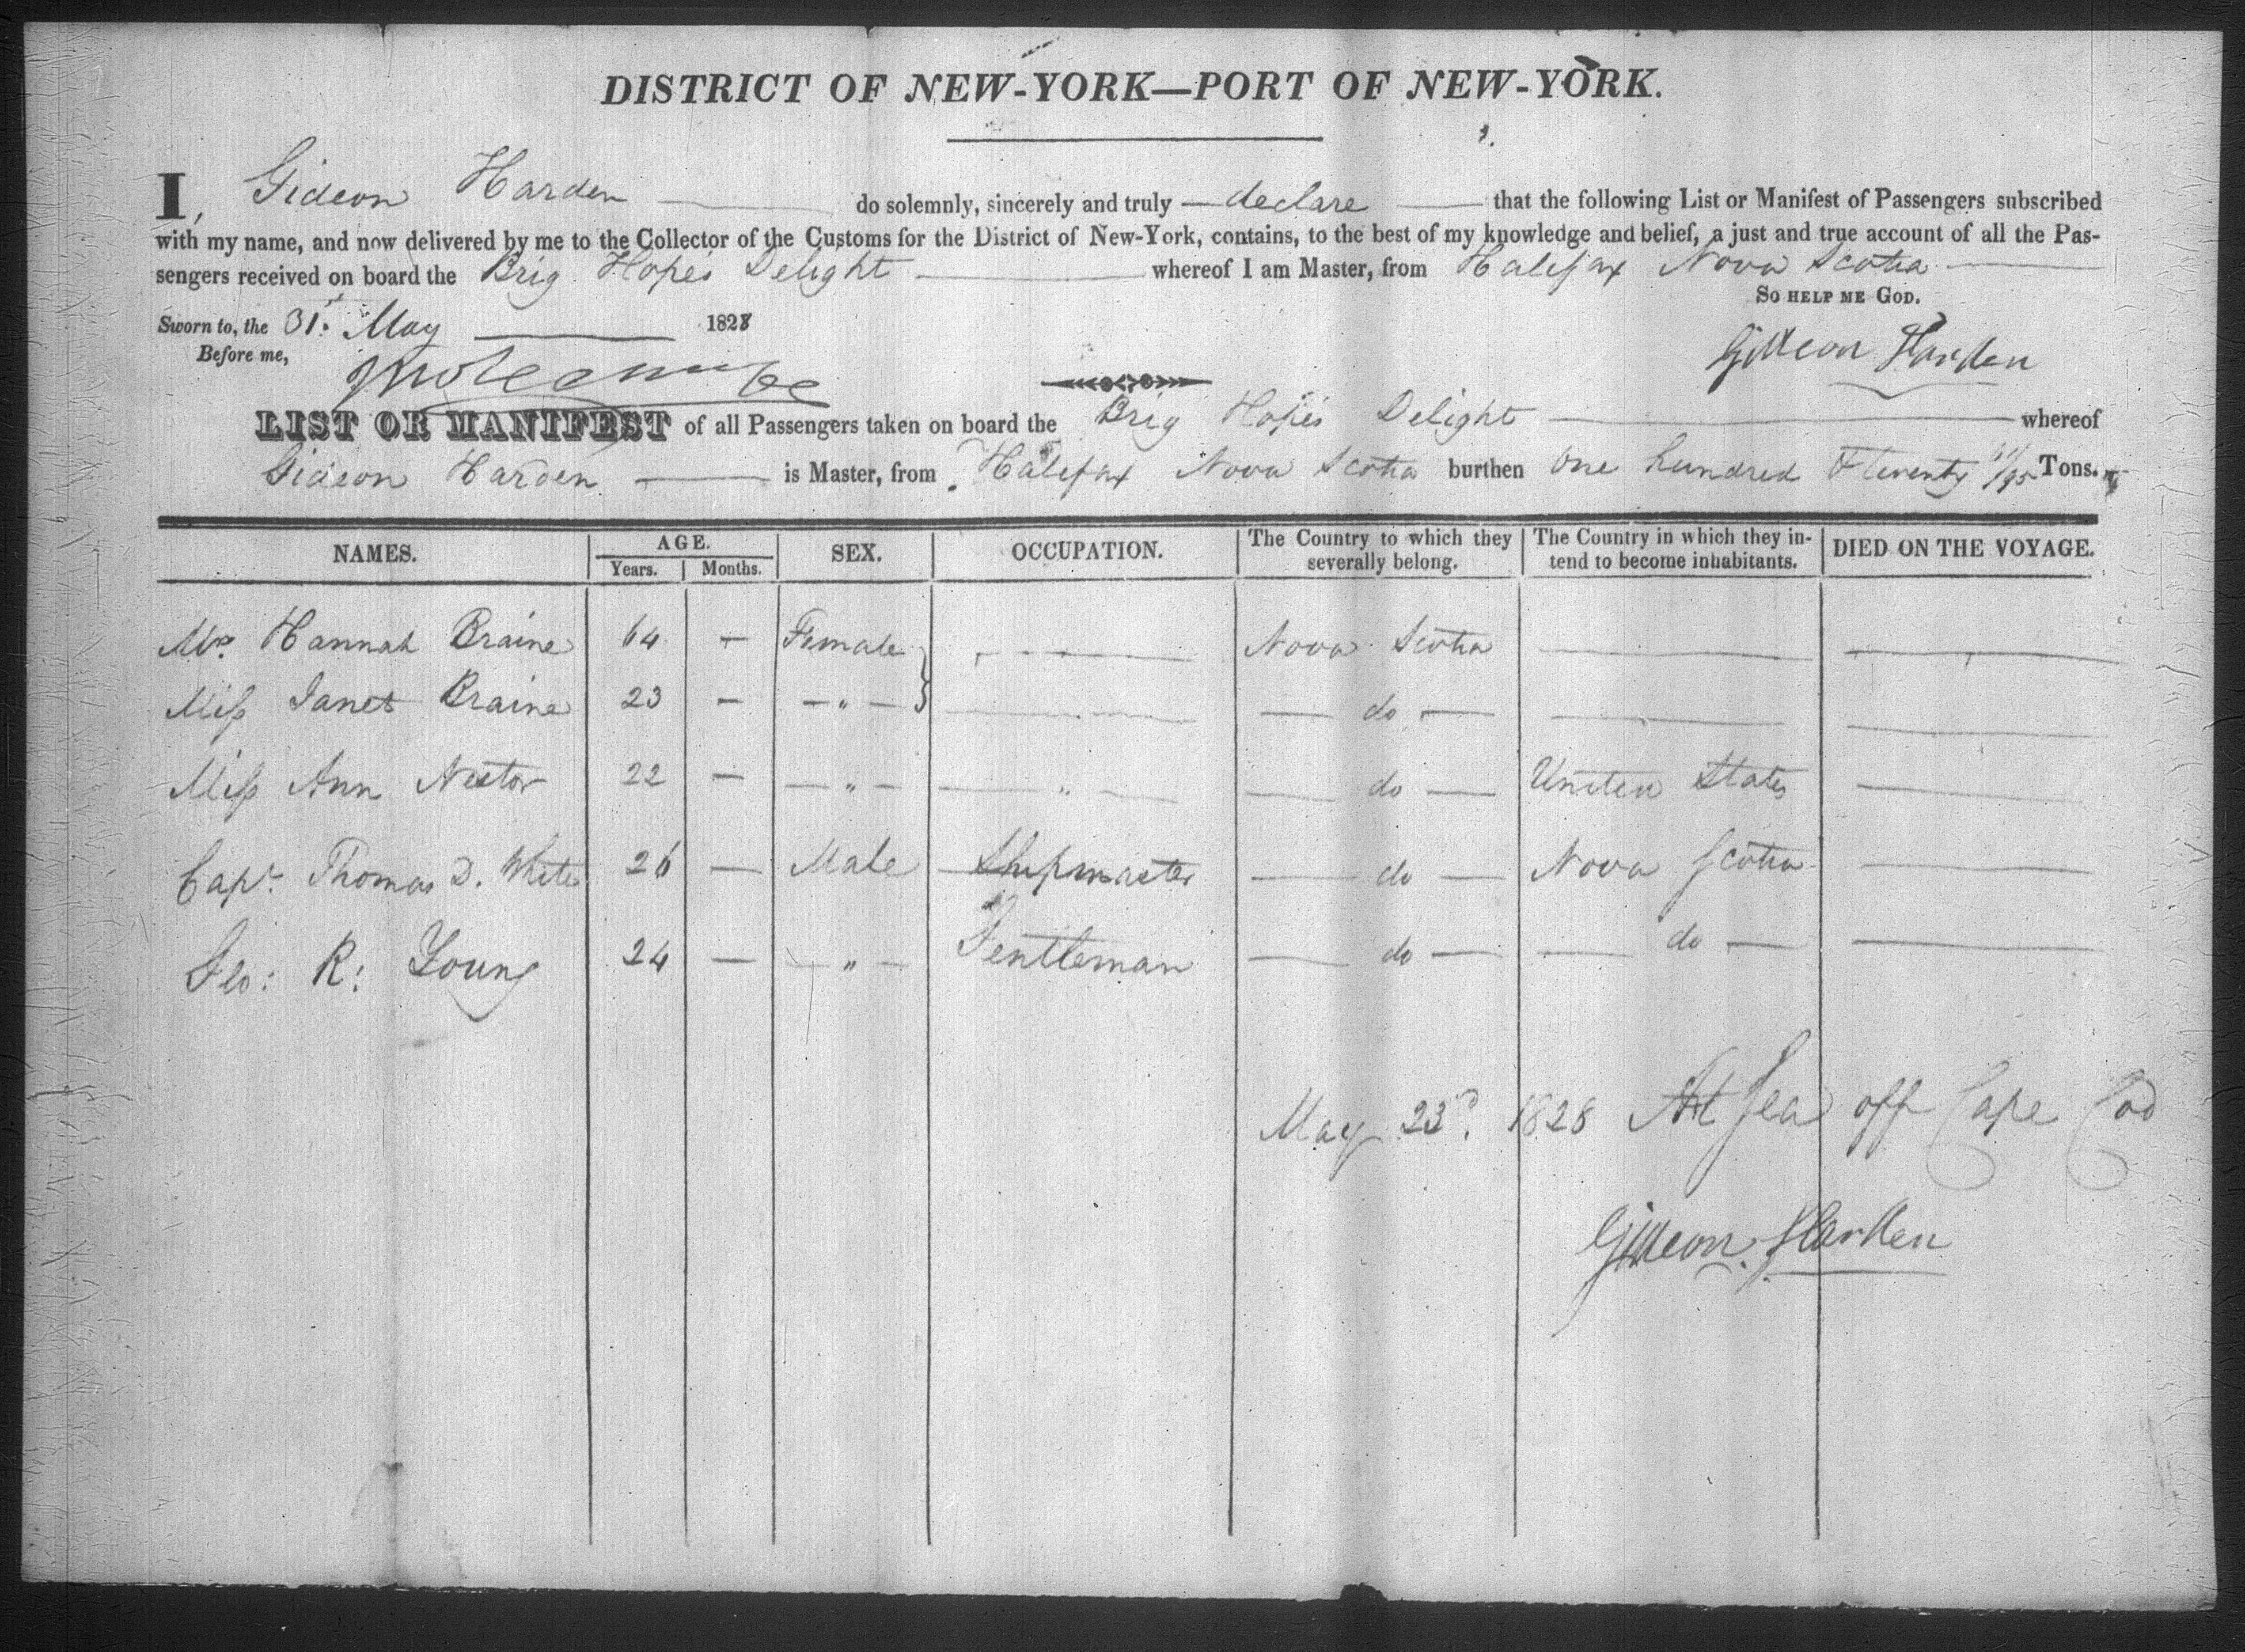 DISTRICT OF NEW-YORK—PORT OF NEW-YORK.
I, Gideon Harden do solemnly, sincerely and truly — declare — that the following List or Manifest of Passengers subscribed
with my name, and now delivered by me to the Collector of the Customs for the District of New-York, contains, to the best of my knowledge and belief, a just and true account of all the Pas-
sengers received on board the Brig Hope's Delight whereof I am Master, from Halifax Nova Scotia
SO HELP ME GOD.
Sworn to, the 31st May 1828
Before me,
Gideon Harden
LIST OR MANIFEST of all Passengers taken on board the Brig Hope's Delight whereof
Gideon Harden is Master, from Halifax Nova Scotia burthen One hundred & Seventy /95 Tons.
NAMES. AGE. Years. Months. SEX. OCCUPATION. The Country to which they severally belong. The Country in which they in-tend to become inhabitants. DIED ON THE VOYAGE.
Mrs Hannah Braine 64 — Female — Nova Scotia — —
Miss Janet Braine 23 — — " — — — do — — —
Miss Ann Nestor 22 — — " — — " — — do — United States —
Capt. Thomas D. White 26 — Male Shipmaster — do — Nova Scotia —
Geo: R: Young 24 — — " — Gentleman — do — — do — —
May 23d. 1828 At Sea off Cape Cod
Gideon Harden